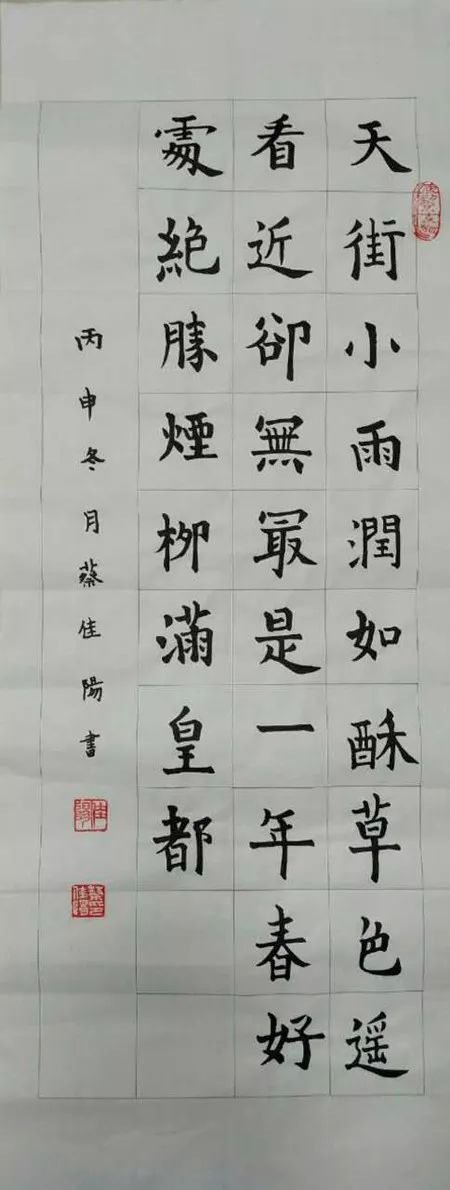 天街小雨潤如酥草色遥
看近卻無冣是一年春好
處絶勝煙柳滿皇都
丙申冬月蔡佳陽書